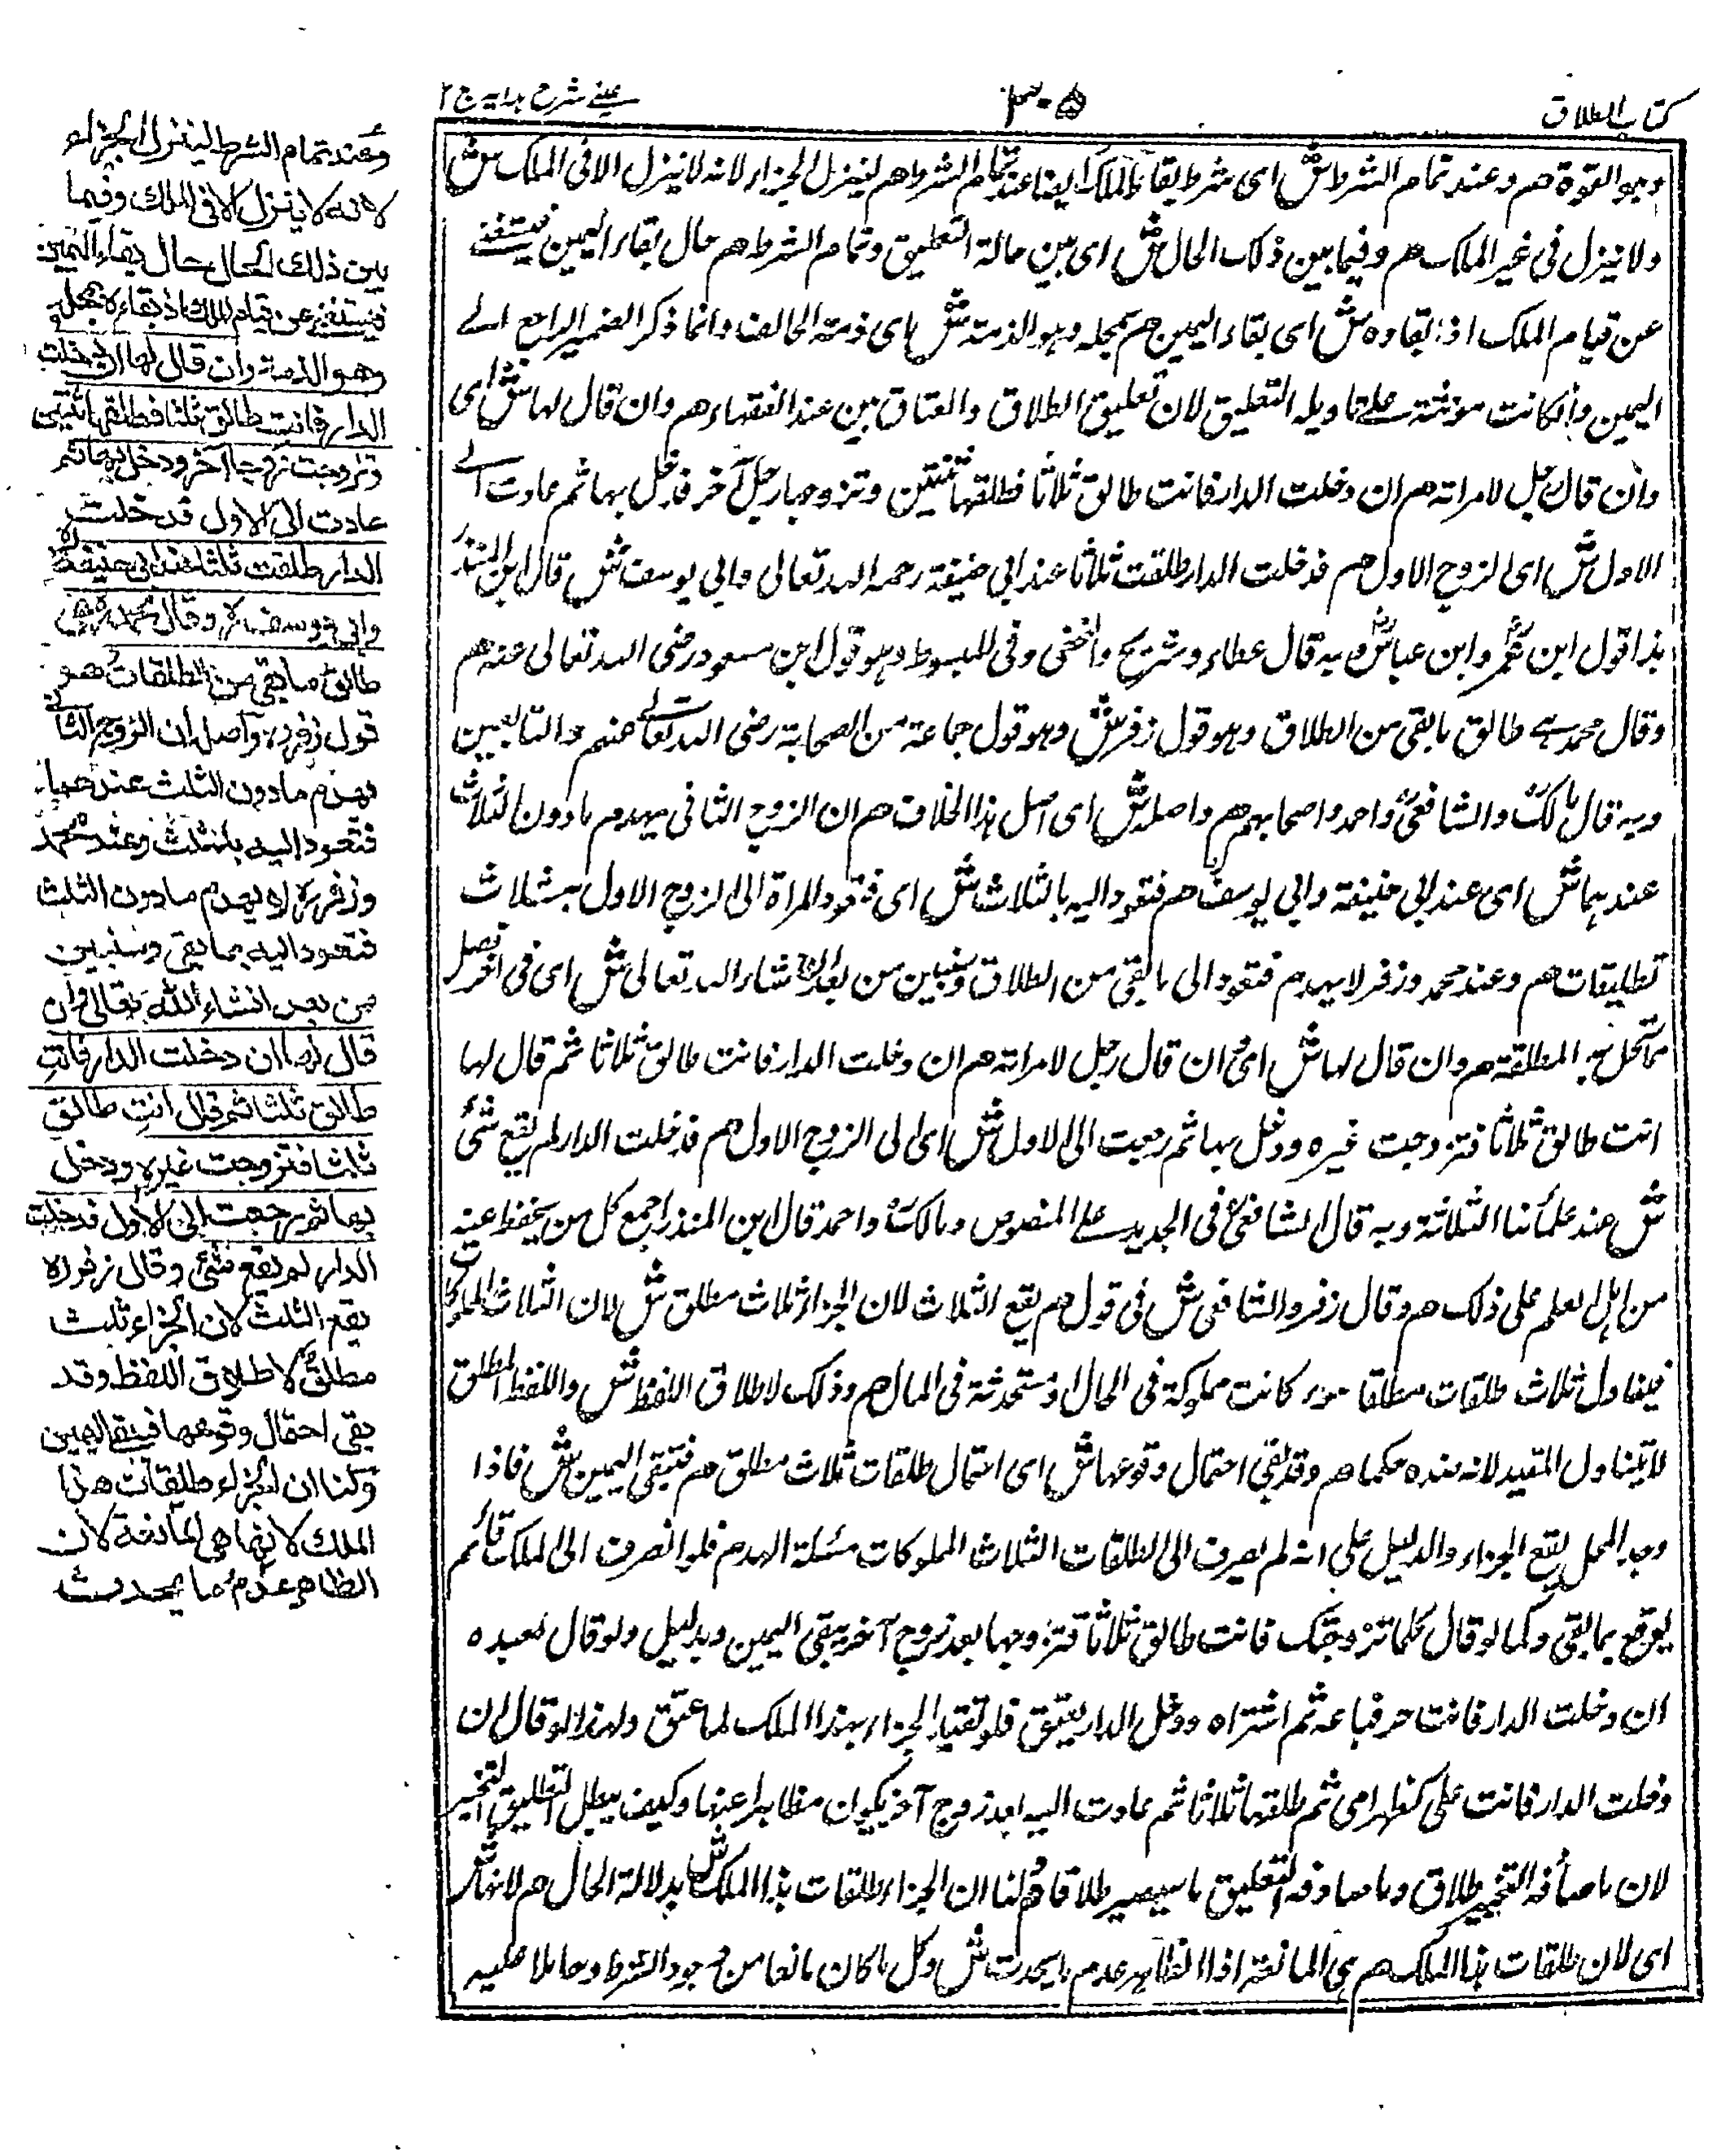 كتاب الطلاق
٣٠٥
عينى شرح هدايه ج ٢
وهو القوة هم وعند تمام الشرط ش اى شرط بقاء الملك ايضا عند تمام الشرط هم لينزل الجزاء لانه لا ينزل الا فى الملك ش
ولا ينزل فى غير الملك هم وفيما بين ذلك الحال ش اى بين حالة التعليق وتمام الشرط هم حال بقاء اليمين فيستغنى
عن قيام الملك اذ بقاوه ش اى بقاء اليمين هم بمحله وهو الذمة ش اى ذمة الحالف وانما ذكر الضمير الراجع الى
اليمين وان كانت مونثة على تاويله التعليق لان تعليق الطلاق والعتاق يمين عند الفقهاء هم وان قال لها ش اى
وان قال رجل لامراته هم ان دخلت الدار فانت طالق ثلاثا فطلقها ثنتين وتزوجها رجل آخر فدخل بها ثم عادت الى
الاول ش اى الزوج الاول هم فدخلت الدار طلقت ثلاثا عند ابى حنيفة رحمه الله تعالى وابى يوسف ش قال ابن المنذر
هذا قول ابن عمر وابن عباس وبه قال عطاء وشريح والنخعى وفى المبسوط وهو قول ابن مسعود رضى الله تعالى عنه هم
وقال محمد هى طالق ما بقى من الطلاق وهو قول زفر ش وهو قول جماعة من الصحابة رضى الله تعالى عنهم والتابعين
وبه قال مالك والشافعى واحمد واصحابهم هم واصله ش اى اصل هذا الخلاف هم ان الزوج الثانى يهدم ما دون الثلاث
عندهما ش اى عند ابى حنيفة وابى يوسف هم فتعود اليه بالثلاث ش اى فتعود المراة الى الزوج الاول بثلاث
تطليقات هم وعند محمد وزفر لا يهدم فتعود الى ما بقى من الطلاق وسنبين من بعد ان شاء الله تعالى ش اى فى آخر فصل
ما تحل به المطلقة هم وان قال لها ش اى ان قال رجل لامراته هم ان دخلت الدار فانت طالق ثلاثا ثم قال لها
انت طالق ثلاثا فتزوجت غيره ودخل بها ثم رجعت الى الاول ش اى الى الزوج الاول هم فدخلت الدار لم يقع شئ
ش عند علمائنا الثلاثة وبه قال الشافعى فى الجديد على المنصوص ومالك واحمد قال ابن المنذر اجمع كل من يحفظ عنه
من اهل العلم على ذلك هم وقال زفر والشافعى ش فى قول هم يقع الثلاث لان الجزاء ثلاث مطلق ش لان الثلاث المملوكات
فيتناول ثلاث طلقات مطلقا سواء كانت مملوكة فى الحال او مستحدثة فى المال هم وذلك لاطلاق اللفظ ش واللفظ المطلق
لا يتناول المقيد لانه ضده حكما هم وقد بقى احتمال وقوعها ش اى احتمال طلقات ثلاث مطلق هم فتبقى اليمين ش فاذا
وجد المحل يقع الجزاء والدليل على انه لم يصرف الى الطلقات الثلاث المملوكات مسئلة الهدم فلو انصرف الى الملك قائم
يوقع بما بقى وكما لو قال كلما تزوجتك فانت طالق ثلاثا فتزوجها بعد زوج آخر يبقى اليمين وبدليل ولو قال لعبده
ان دخلت الدار فانت حر فباعه ثم اشتراه ودخل الدار يعتق فلو تقيد الجزاء بهذا الملك لما عتق ولهذا لو قال ان
دخلت الدار فانت على كظهر امى ثم طلقها ثلاثا ثم عادت اليه بعد زوج آخر يكون مظاهرا عنها وكيف يبطل التعليق التنجيز
لان ما صادفه التنجيز طلاق وما صادفه التعليق ما سيصير طلاقا هم ولنا ان الجزاء طلقات هذا الملك ش بدلالة الحال هم لانها ش
اى لان طلقات هذا الملك هم هى المانعة اذ الظاهر عدم ما يحدث ش وكل ما كان مانعا من وجود الشرط وحاملا عليه
وعند تمام الشرط لينزل الجزاء
لانه لا ينزل الا فى الملك وفيما
بين ذلك الحال حال بقاء اليمين
فيستغنى عن قيام الملك اذ بقاءه بمحله
وهو الذمة وان قال لها ان دخلت
الدار فانت طالق ثلثا فطلقها ثنتين
وتزوجت زوجا آخر ودخل بها ثم
عادت الى الاول فدخلت
الدار طلقت ثلثا عند ابى حنيفة رح
وابى يوسف رح وقال محمد رح هى
طالق ما بقى من الطلقات وهو
قول زفر رح واصله ان الزوج الثانى
يهدم ما دون الثلث عندهما
فتعود اليه بالثلث وعند محمد
وزفر رح لا يهدم ما دون الثلث
فتعود اليه بما بقى وسنبين
من بعد انشاء الله تعالى وان
قال لها ان دخلت الدار فانت
طالق ثلثا ثم قال انت طالق
ثلثا فتزوجت غيره ودخل
بها ثم رجعت الى الاول فدخلت
الدار لم يقع شئ وقال زفر رح
يقع الثلث لان الجزاء ثلث
مطلق لاطلاق اللفظ وقد
بقى احتمال وقوعها فيبقى اليمين
ولنا ان الجزاء طلقات هذا
الملك لانها هى المانعة لان
الظاهر عدم ما يحدث